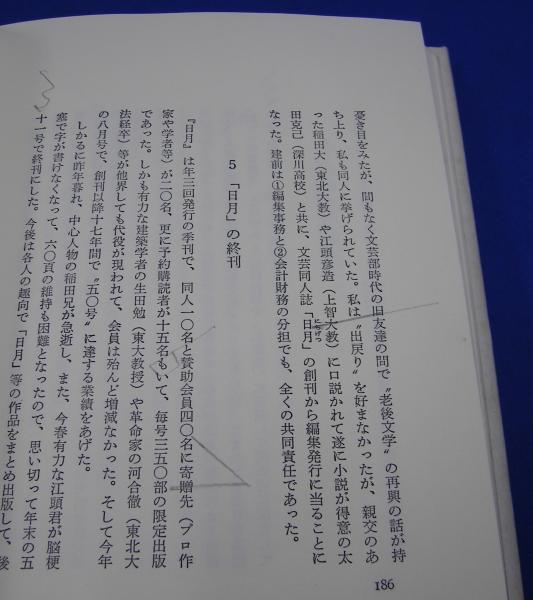 憂き目をみたが、間もなく文芸部時代の旧友達の間で〝老後文学〟の再興の話が持
ち上り、私も同人に挙げられていた。私は〝出戻り〟を好まなかったが、親交のあ
った稲田大（東北大教）や江頭彦造（上智大教）に口説かれて遂に小説が得意の太
田克己（深川高校）と共に、文芸同人誌「日月」の創刊から編集発行に当ることに
なった。建前は①編集事務と②会計財務の分担でも、全くの共同責任であった。
5　「日月」の終刊
『日月』は年三回発行の季刊で、同人一〇名と賛助会員四〇名に寄贈先（プロ作
家や学者等）が二〇名、更に予約購読者が十五名もいて、毎号三五〇部の限定出版
であった。しかも有力な建築学者の生田勉（東大教授）や革命家の河合徹（東北大
法経卒）等が他界しても代役が現われて、会員は殆んど増減なかった。そして今年
の八月号で、創刊以降十七年間で〝五〇号〟に達する業績をあげた。
しかるに昨年暮れ、中心人物の稲田兄が急逝し、また、今春有力な江頭君が脳梗
塞で字が書けなくなって、六〇頁の維持も困難となったので、思い切って年末の五
十一号で終刊にした。今後は各人の趣向で「日月」等の作品をまとめ出版して、後
186